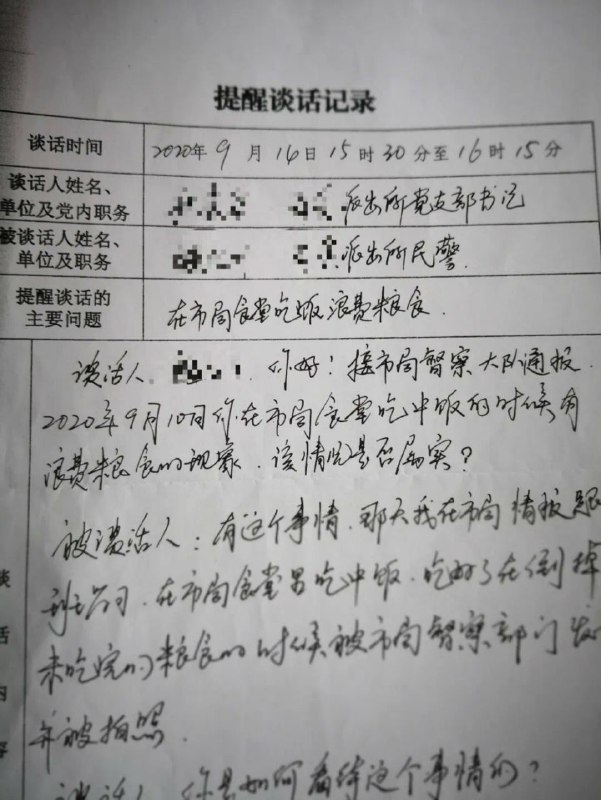 提醒谈话记录
谈话时间 2020年9月16日15时30分至16时15分
谈话人姓名、
单位及党内职务 派出所党支部书记
被谈话人姓名、
单位及职务 派出所民警
提醒谈话的
主要问题 在市局食堂吃饭浪费粮食.
谈话人 你好！接市局督察大队通报.
2020年9月10日你在市局食堂吃中饭的时候有
浪费粮食的现象.该情况是否属实？
被谈话人：有这个事情.那天我在市局情报
期间.在市局食堂吃中饭.吃好了在倒掉
未吃完的粮食的时候被市局督察部门发
并被拍照.
谈话人 你是如何看待这个事情的？
谈
话
内
容